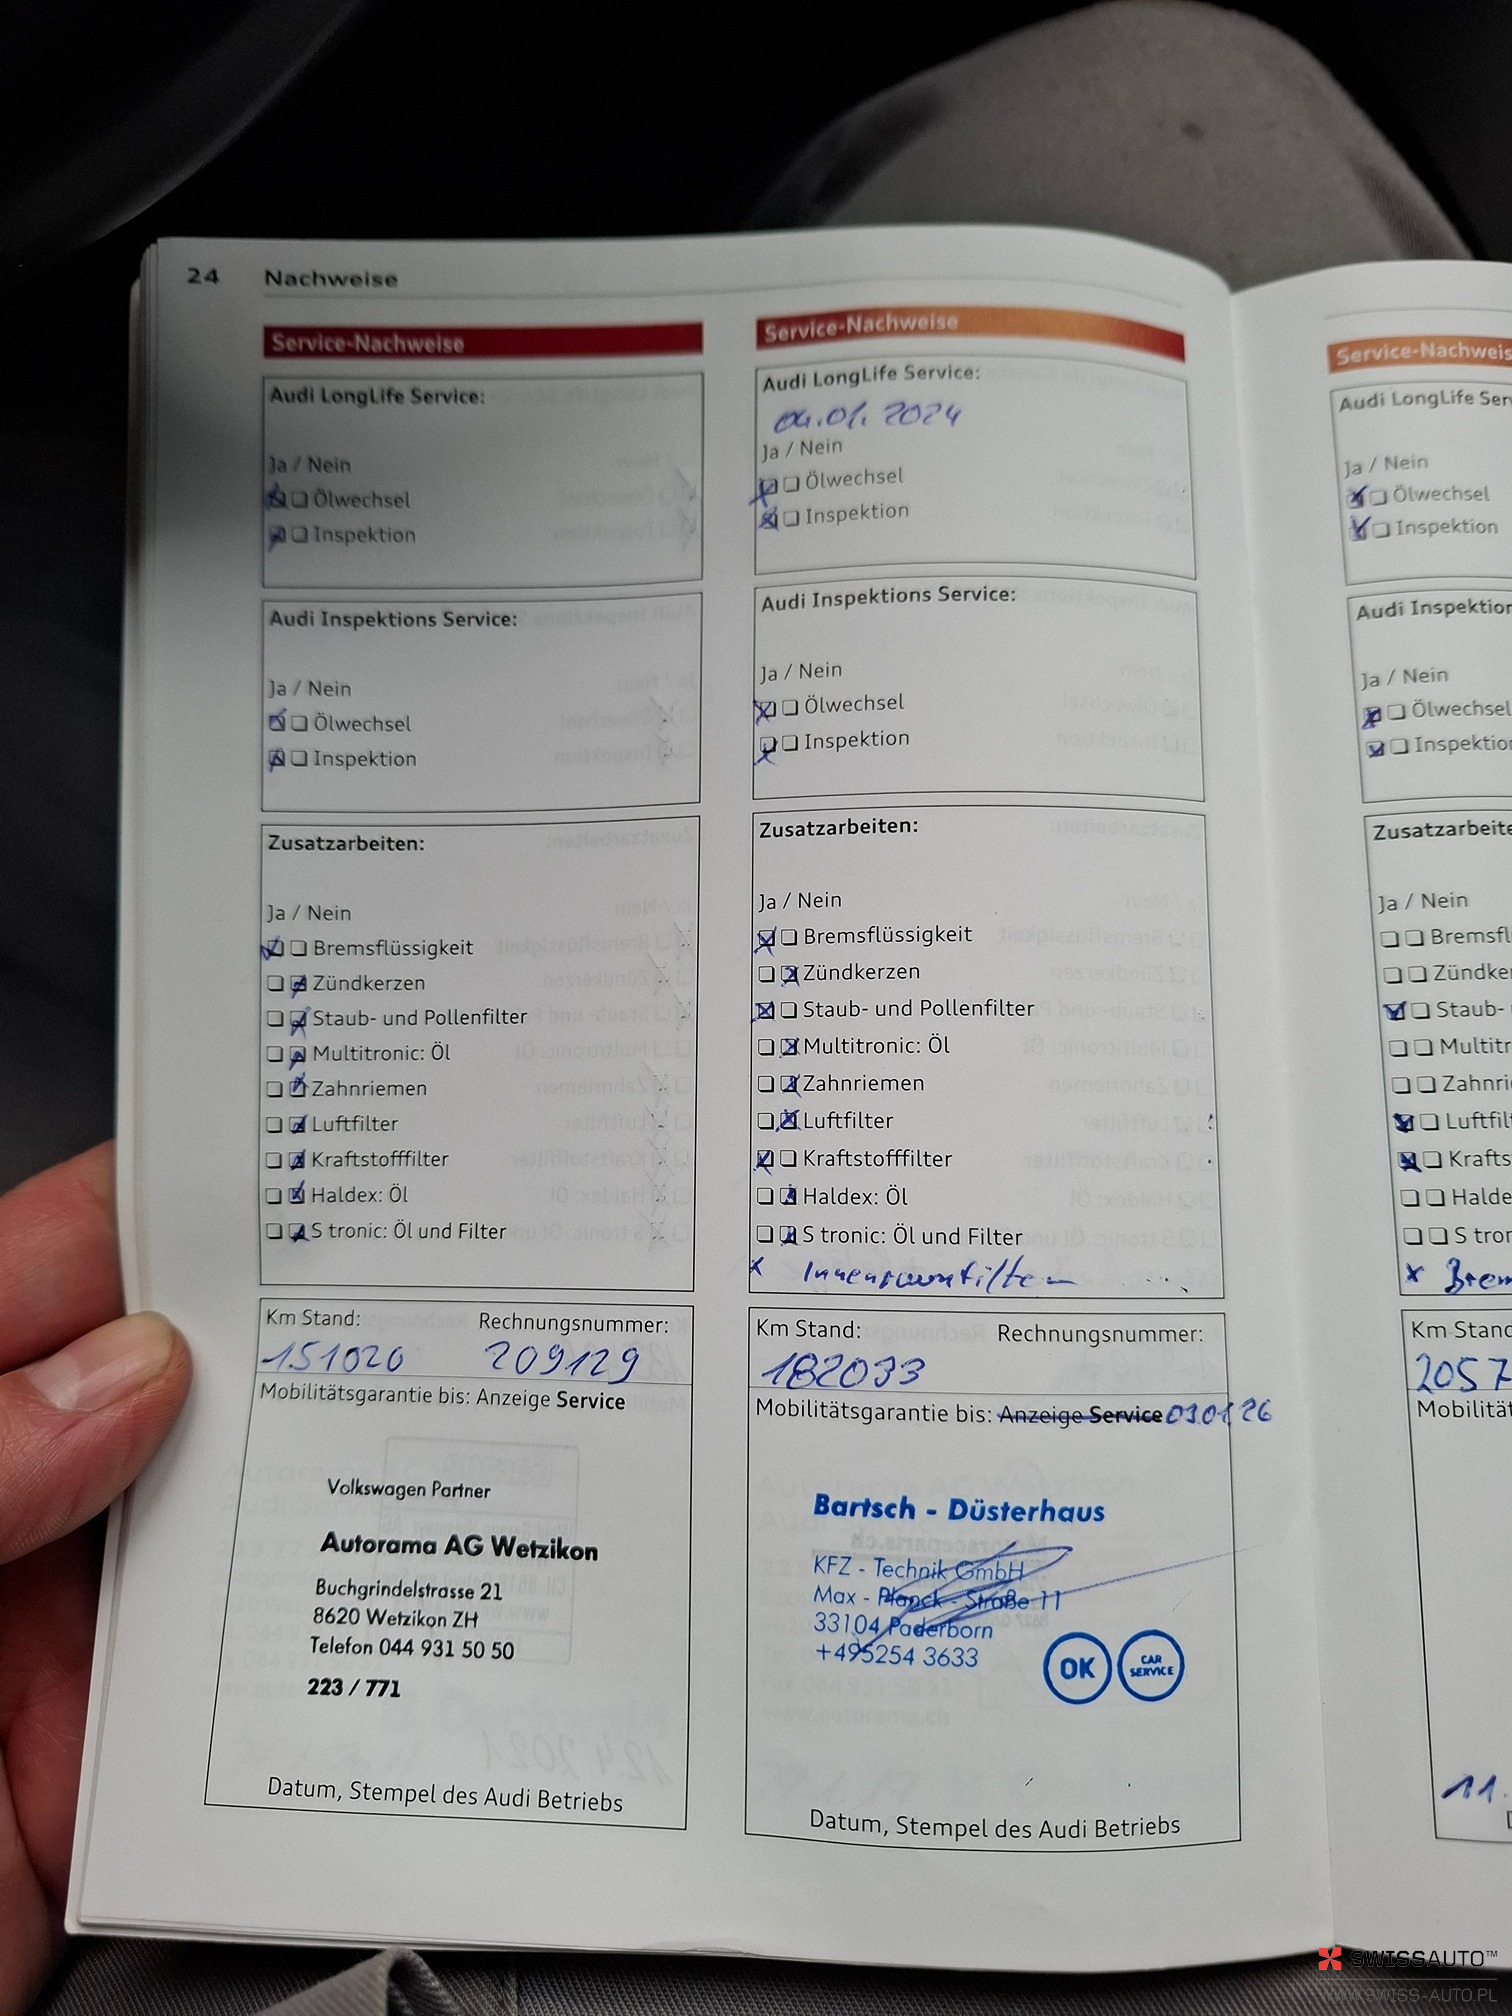 24 Nachweise
Service-Nachweise
Audi LongLife Service:
Ja / Nein
Ölwechsel
Inspektion
Audi Inspektions Service:
Ja / Nein
Ölwechsel
Inspektion
Zusatzarbeiten:
Ja / Nein
Bremsflüssigkeit
Zündkerzen
Staub- und Pollenfilter
Multitronic: Öl
Zahnriemen
Luftfilter
Kraftstofffilter
Haldex: Öl
S tronic: Öl und Filter
Km Stand: Rechnungsnummer:
151020 209129
Mobilitätsgarantie bis: Anzeige Service
Volkswagen Partner
Autorama AG Wetzikon
Buchgrindelstrasse 21
8620 Wetzikon ZH
Telefon 044 931 50 50
223 / 771
Datum, Stempel des Audi Betriebs
Service-Nachweise
Audi LongLife Service:
04.01.2024
Ja / Nein
Ölwechsel
Inspektion
Audi Inspektions Service:
Ja / Nein
Ölwechsel
Inspektion
Zusatzarbeiten:
Ja / Nein
Bremsflüssigkeit
Zündkerzen
Staub- und Pollenfilter
Multitronic: Öl
Zahnriemen
Luftfilter
Kraftstofffilter
Haldex: Öl
S tronic: Öl und Filter
x Innenraumfilter
Km Stand: Rechnungsnummer:
182033
Mobilitätsgarantie bis: Anzeige Service 03.01.26
Bartsch - Düsterhaus
KFZ - Technik GmbH
Max - Planck - Straße 11
33104 Paderborn
+495254 3633
OK CAR SERVICE
Datum, Stempel des Audi Betriebs
Service-Nachweis
Audi LongLife Ser
Ja / Nein
Ölwechsel
Inspektion
Audi Inspektion
Ja / Nein
Ölwechsel
Inspektio
Zusatzarbeite
Ja / Nein
Bremsfl
Zündke
Staub-
Multitr
Zahnri
Luftfil
Krafts
Halde
S tror
x Brem
Km Stand
2057
Mobilität
11.
SWISSAUTO™
WWW.SWISS-AUTO.PL